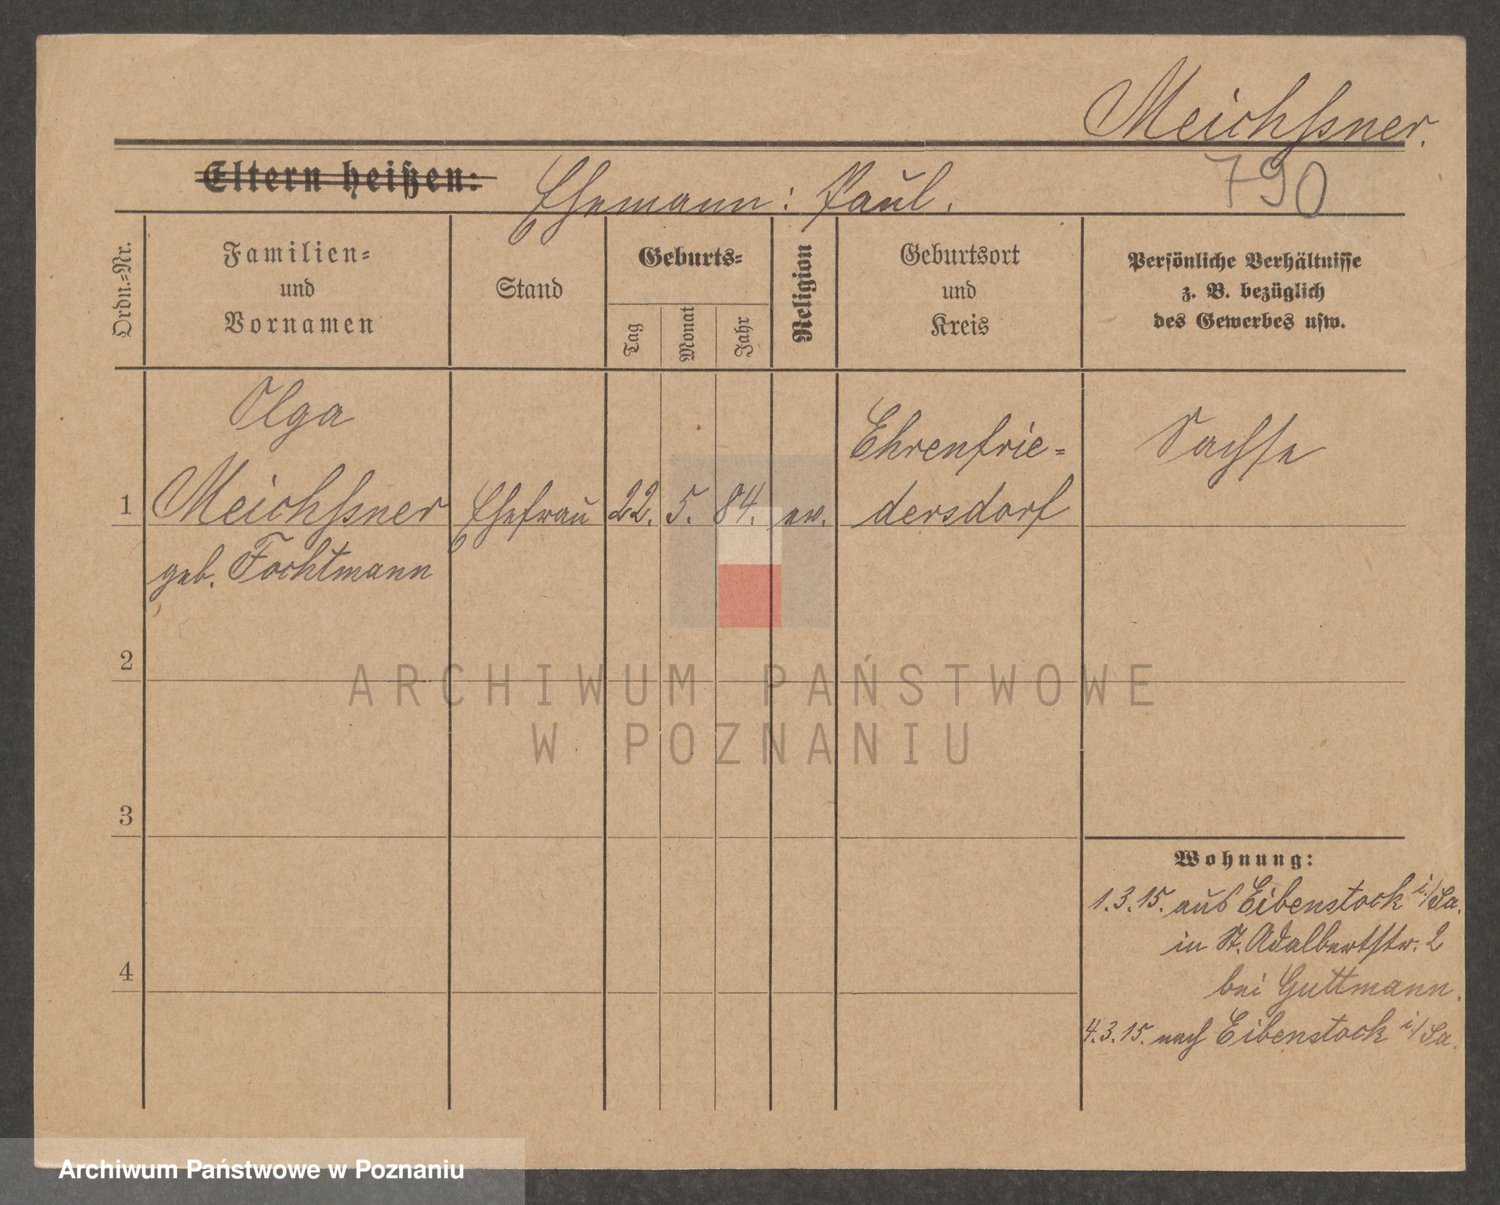 Meichßner.
Eltern heißen: Ehemann: Paul.
790
Ordn.-Nr.
Familien-
und
Vornamen
Stand
Geburts-
Tag
Monat
Jahr
Religion
Geburtsort
und
Kreis
Persönliche Verhältnisse
z. B. bezüglich
des Gewerbes usw.
Olga
1 Meichßner Ehefrau 22. 5. 84. ev. Ehrenfrie-
dersdorf
Sachse
geb. Fochtmann
2
3
4
Wohnung:
1.3.15. aus Eibenstock i/Sa.
in St. Adalbertstr. 2
bei Guttmann.
4.3.15. nach Eibenstock i/Sa.
ARCHIWUM PAŃSTWOWE
W POZNANIU
Archiwum Państwowe w Poznaniu